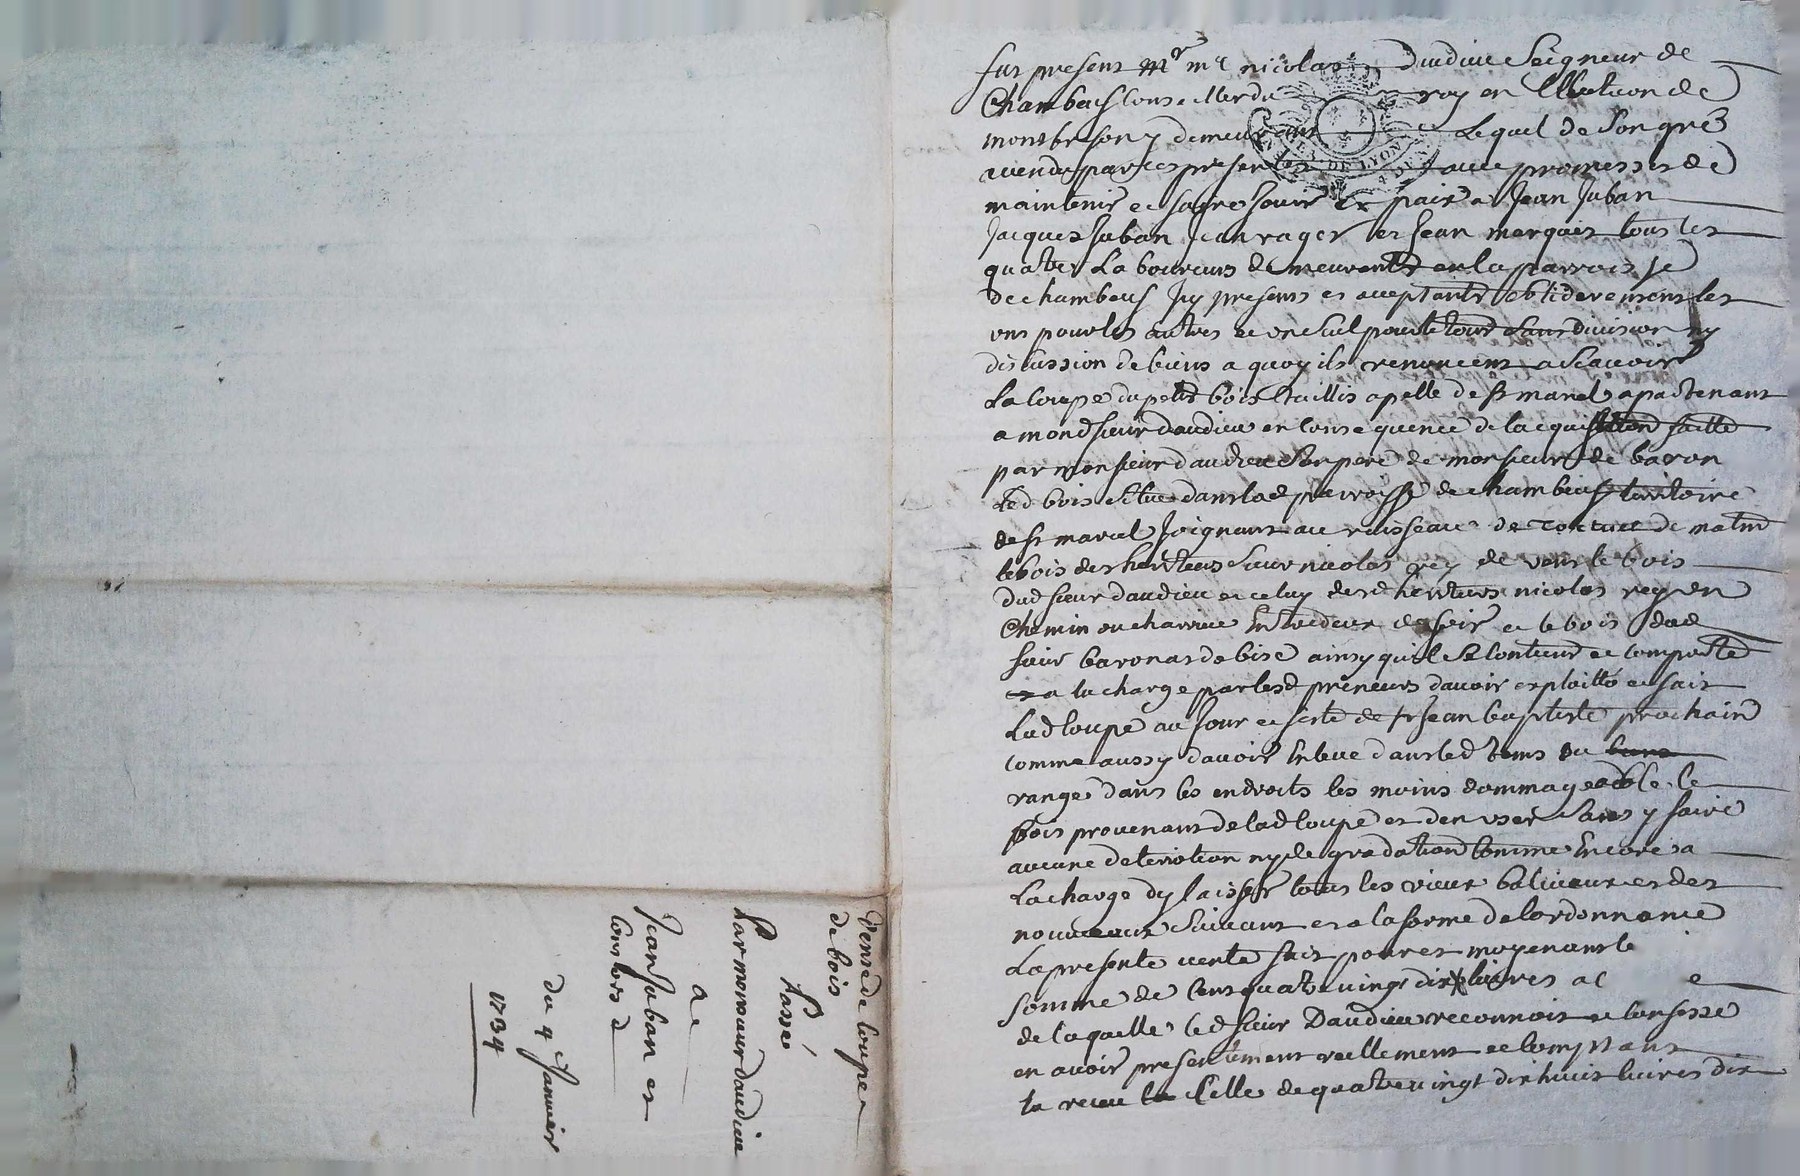 fut present Mr me nicolas Daudieu Seigneur de
Chambeuf Conseiller du roy en Election de
montbrison y demeurant Lequel de Son gré
a vendu par ces presentes avec promesses de
maintenir et faire jouir en paix a Jean Juban
Jacques Juban Jean rager et Jean marques tous les
quatre Laboureurs demeurants en la parroisse
de chambeuf Icy presents et acceptants soliderement les
uns pour les autres et un Seul pour le tout Sans division ny
discussion de biens a quoy ils renoncent a Scavoir
La Coupe du petit bois taillis apellé de st marcel apartenant
a mond sieur daudieu en Consequence de lacquisition faitte
par monsieur daudieu Son pere de monsieur de baron
Led bois situe dans lad parroisse de chambeuf territoire
de st marcel Joignant au ruisseau de de matin
le bois des heritiers Sieur nicolas rey de vent le bois
dud sieur daudieu et celuy desd heritiers nicolas rey un
Chemin ou charriere Entredeux de soir et le bois dud
sieur baronas de bise ainsy quil Se Contient et comporte
a la charge par lesd preneurs davoir exploitté et fait
Lad Coupe au Jour et feste de st Jean baptiste prochain
comme aussy davoir Enlevé dans led tems ou
rangé dans les endroits les moins dommageable le
bois provenant de lad Coupe et den user Sans y faire
aucune deteriotion ny degradation Comme Encore a
La charge dy laisser tous les vieux baliveaux et des
nouveaux Suivant et a la forme de lordonnance
La presente vente fait pour et moyenant le
Somme de Cent quatre vingt dix livres
de laquelle led sieur Daudieu reconnoit et Confesse
en avoir presentement reellement et Comptant
la receu Celle de quatre vingt dix huit livres dix
Vente de Coupe
de bois
Passé
Par monsieur daudieu
a
Jean Juban et
Consors
du 4 Janvier
1734